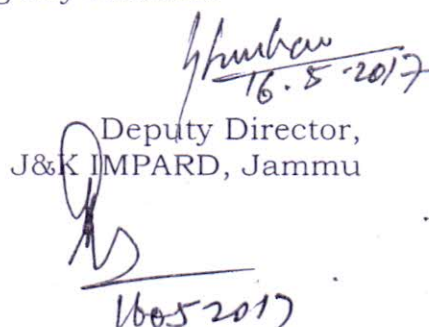 16.5-2017
Deputy Director,
J&K IMPARD, Jammu
16052017